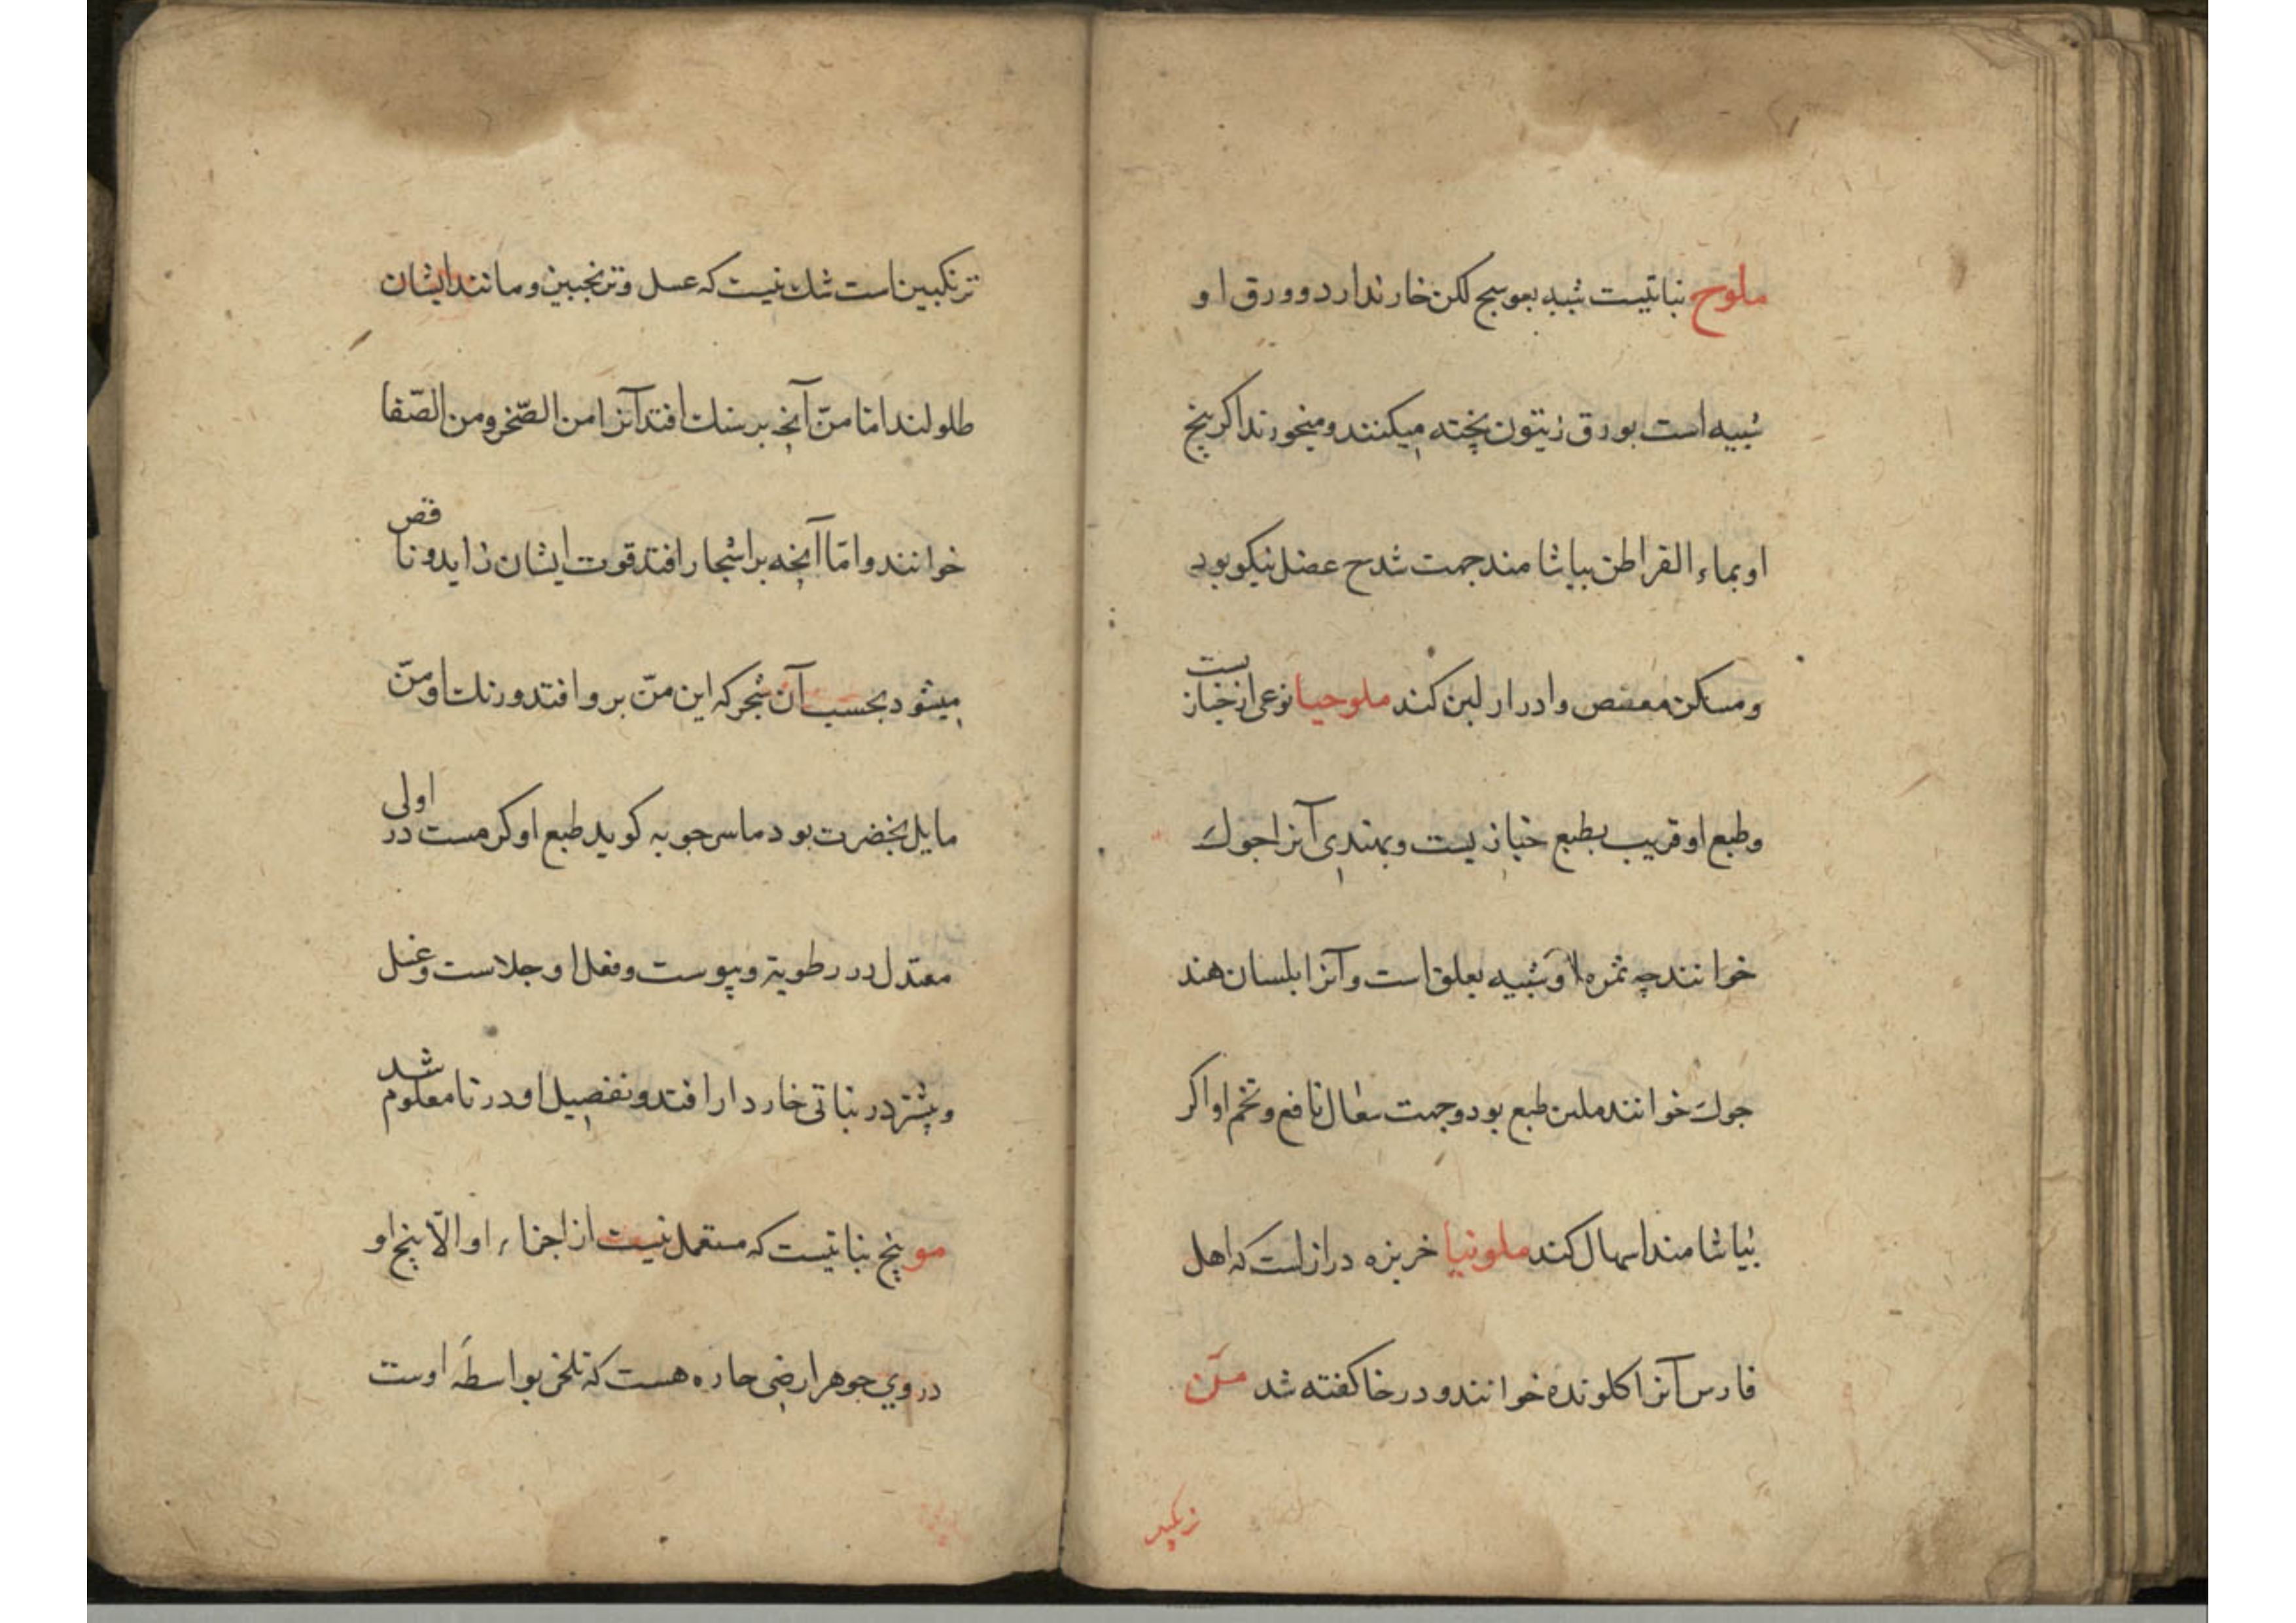 ملوح نباتیست شبیه بعوسج لکن خار ندارد و ورق او
شبیه است بورق زیتون پخته میکنند و میخورند اکر بیخ
او بماء القراطن بیاشامند جهت شدح عضل نیکو بود
و مسکن مغص و ادرار لبن کند ملوحیا نوعی از خبازیست
و طبع او قریب بطبع خبازیست و بهندی آنرا جوك
خوانند چه ثمره او شبیه بعلق است و آنرا بلسان هند
جوك خوانند ملین طبع بود و جهت سعال نافع و تخم او اکر
بیاشامند اسهال کند ملونیا خربزه دراز است که اهل
فارس آنرا کلونده خوانند و در خا کفته شد منّ
ترنکبین است شك نیست که عسل و ترنجبین و مانند ایشان
طلولند امّا منّ آنچه بر سنك افتد آنرا من الصّخر و من الصّفا
خوانند و امّا آنچه بر اشجار افتد قوت ایشان زاید و ناقص
میشود بحسب آن شجر که این منّ برو افتد و رنك او منّ
مایل بخضرت بود ماسرجویه کوید طبع او کرمست در اولی
معتدل در رطوبة و یبوست و فعل او جلاست و غسل
و بیشتر در نباتی خاردار افتد و تفصیل او در تا معلوم شد
مو بیخ نباتیست که مستعمل نیست از اجزاء او الّا بیخ او
در وی جوهر ارضی حاره هست که تلخی بواسطهٔ اوست